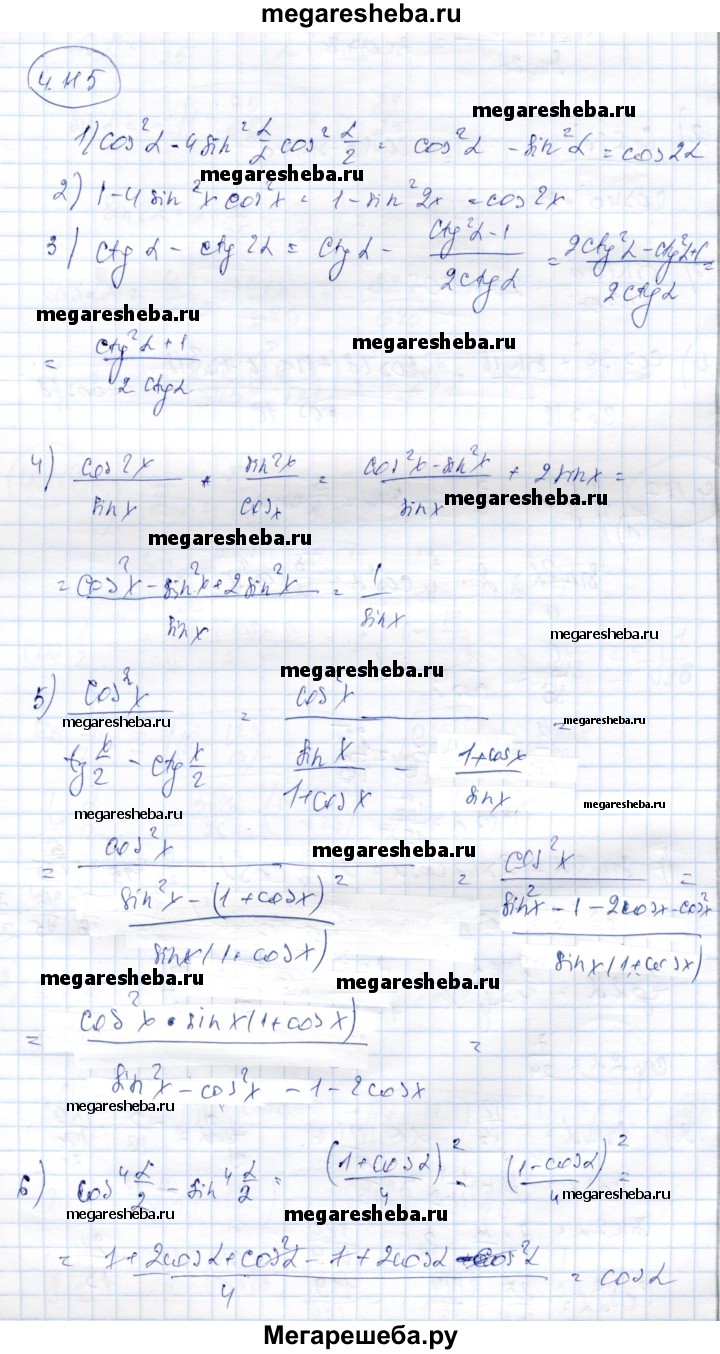 megaresheba.ru
4.115
megaresheba.ru
1) cos²α - 4 sin² α/2 cos² α/2 = cos²α - sin²α = cos2α
megaresheba.ru
2) 1-4 sin²x cos²x = 1-sin²2x = cos²2x
3) ctgα - ctg2α = ctgα - (ctg²α-1)/(2ctgα) = (2ctg²α-ctg²α+1)/(2ctgα) =
megaresheba.ru
megaresheba.ru
= (ctg²α+1)/(2ctgα)
4) cos2x/sinx + sin2x/cosx = (cos²x-sin²x)/sinx + 2sinx =
megaresheba.ru
megaresheba.ru
= (cos²x-sin²x+2sin²x)/sinx = 1/sinx
megaresheba.ru
megaresheba.ru
5) cos²x/(tg x/2 - ctg x/2) = cos²x/(sinx/(1+cosx) - (1+cosx)/sinx) =
megaresheba.ru
megaresheba.ru
megaresheba.ru
megaresheba.ru
megaresheba.ru
= cos²x/((sin²x-(1+cosx)²)/(sinx(1+cosx))) = cos²x/((sin²x-1-2cosx-cos²x)/(sinx(1+cosx))) =
megaresheba.ru
megaresheba.ru
= (cos²x·sinx(1+cosx))/(sin²x-cos²x-1-2cosx) =
megaresheba.ru
6) cos⁴ α/2 - sin⁴ α/2 = (1+cosα)²/4 - (1-cosα)²/4 =
megaresheba.ru
megaresheba.ru
megaresheba.ru
= (1+2cosα+cos²α-1+2cosα-cos²α)/4 = cosα
Мегарешеба.ру